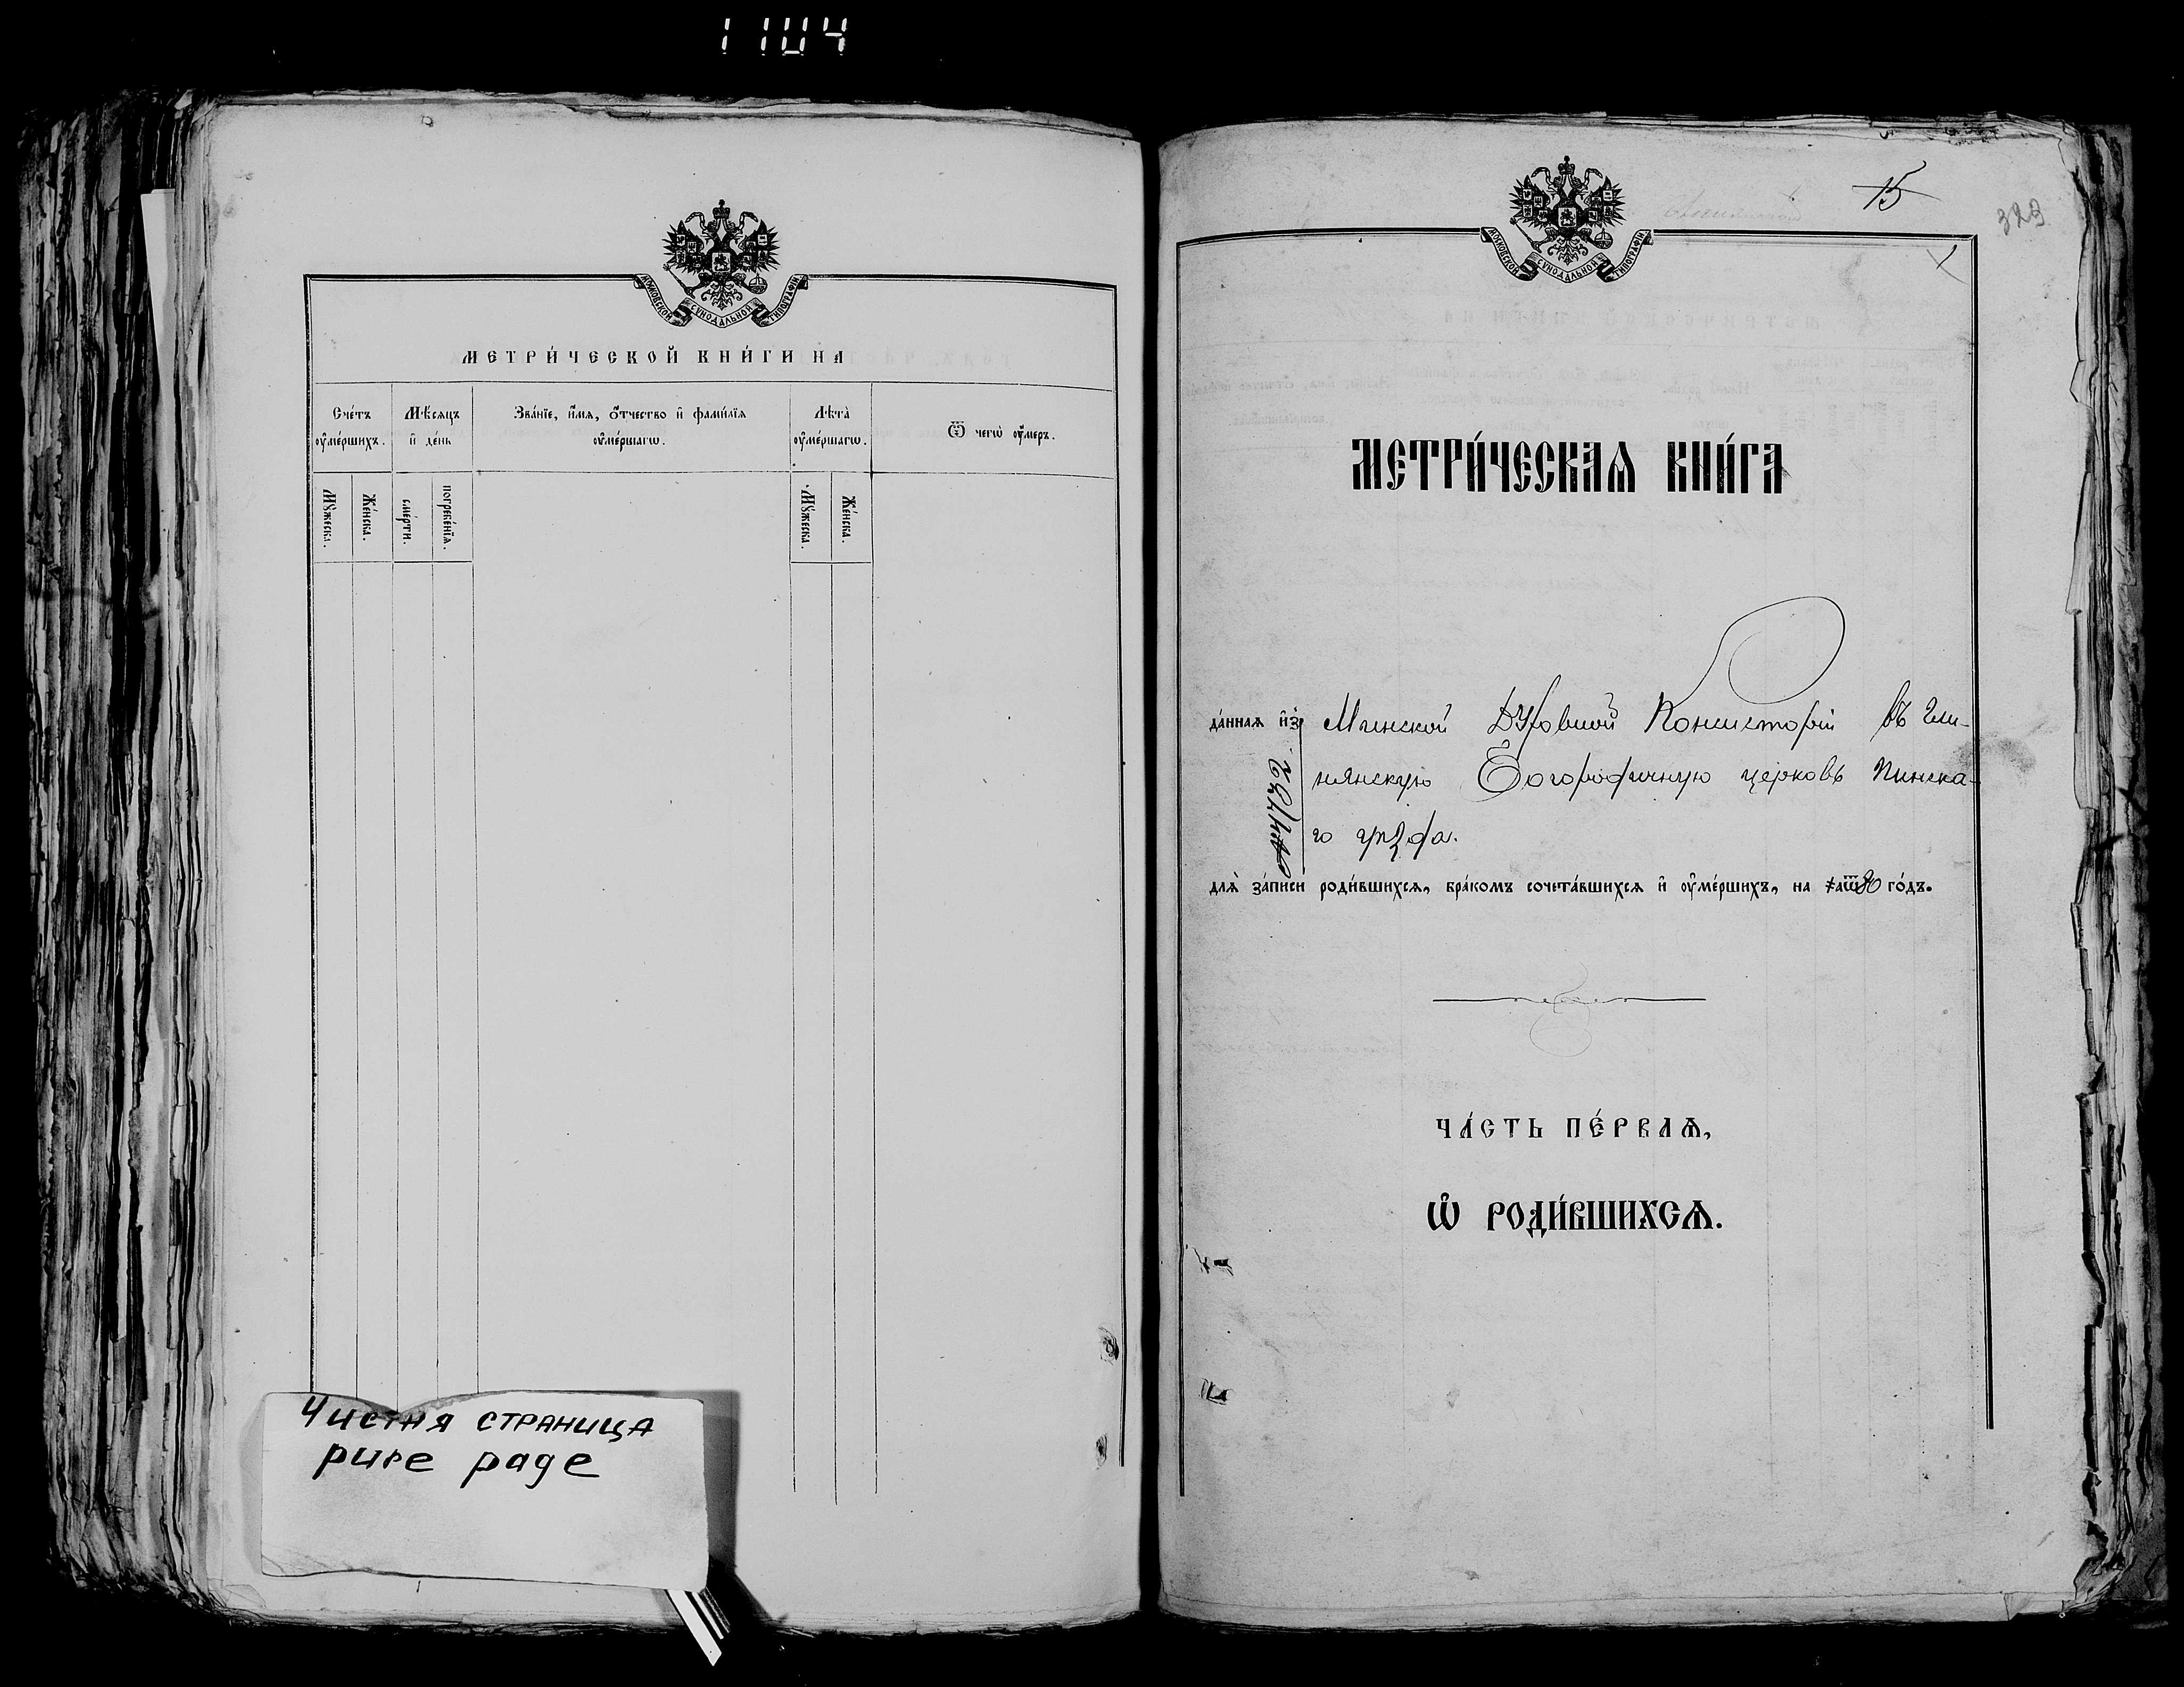 1104
МОСКОВСКОЙ СѴНОДАЛЬНОЙ ТИПОГРАФІИ
МЕТРИ́ЧЕСКОЙ КНИ́ГИ НА
Сче́тъ ᲂу҆ме́ршихъ.
Мѣ́сяцъ и҆ де́нь
Зва́нїе, и҆́мѧ, ѻ҆́тчество и҆ фами́лїѧ ᲂу҆ме́ршагѡ.
Лѣ́та ᲂу҆ме́ршагѡ.
Ѿ чегѡ̀ ᲂу҆́меръ.
Мꙋ́жеска.
Же́нска.
сме́рти.
погребе́нїѧ.
Мꙋ́жеска.
Же́нска.
Чистая страница
pure page
15
323
1
МОСКОВСКОЙ СѴНОДАЛЬНОЙ ТИПОГРАФІИ
МЕТРИ́ЧЕСКАѦ КНИ́ГА
да́ннаѧ и҆з̾ Минской Духовной Консисторіи въ
Богородичную церковь Пинска-
го уѣзда.
длѧ̀ за́писи роди́вшихсѧ, бра́комъ сочета́вшихсѧ и҆ ᲂу҆ме́ршихъ, на ҂аѿ го́дъ.
ЧА́СТЬ ПЕ́РВАѦ,
Ѡ҆ РОДИ́ВШИХСѦ.